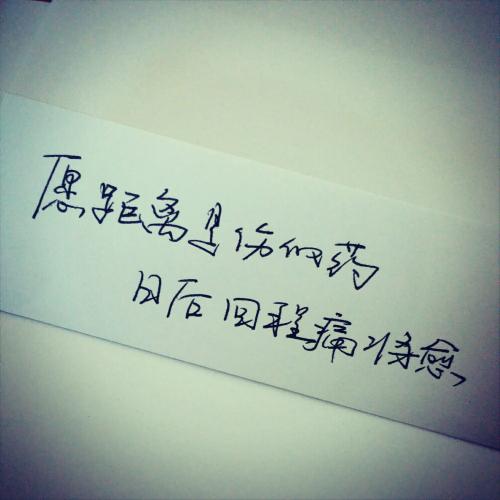 愿距离是伤的药
日后回程痛将愈